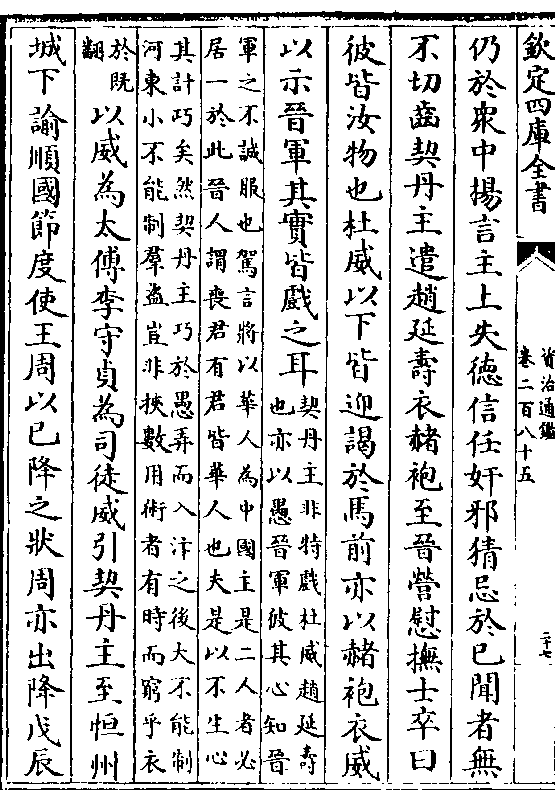 欽定四庫全書
資治通鑑
卷二百八十五
二十七
仍於衆中揚言主上失德信任奸邪猜忌於已聞者無
不切齒契丹主遣趙延壽衣赭袍至晉營慰撫士卒曰
彼皆汝物也杜威以下皆迎謁於馬前亦以赭袍衣威
以示晉軍其實皆戲之耳
契丹主非特戲杜威趙延壽
也亦以愚晉軍彼其心知晉
軍之不誠服也駕言將以華人為中國主是二人者必
居一於此晉人謂喪君有君皆華人也夫是以不生心
其計巧矣然契丹主巧於愚弄而入汴之後大不能制
河東小不能制羣盜豈非挾數用術者有時而窮乎衣
於既
翻
以威為太傅李守貞為司徒威引契丹主至恒州
城下諭順國節度使王周以已降之狀周亦出降戊辰